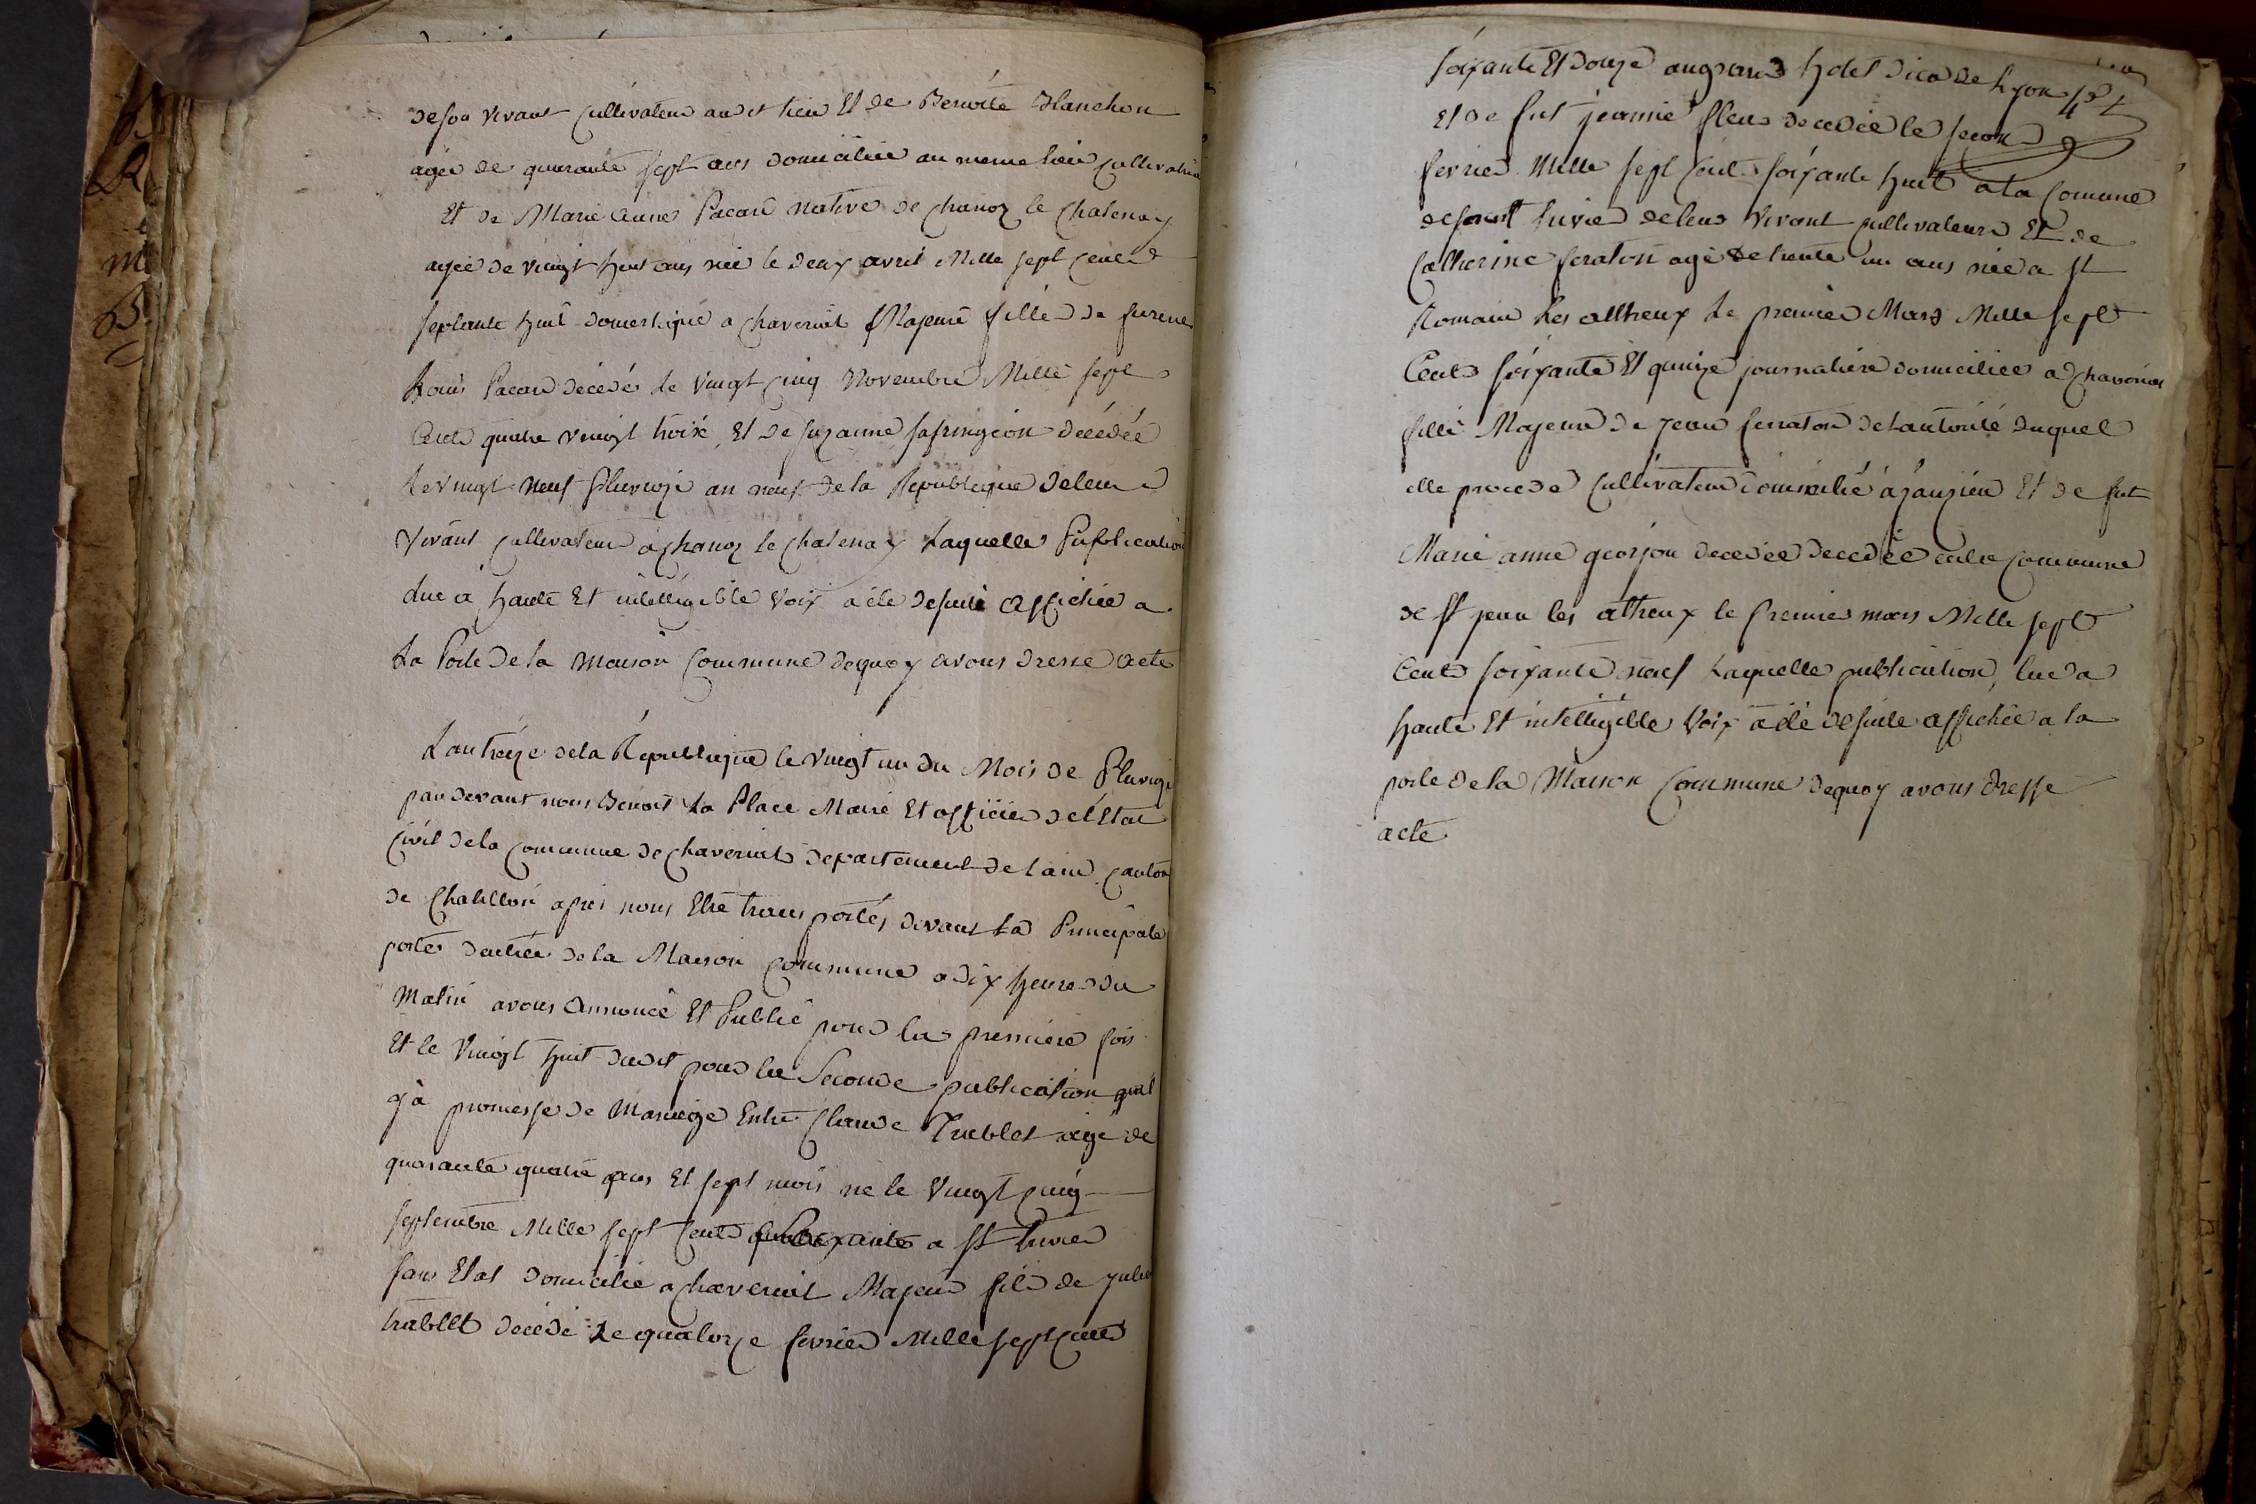 de son vivant Cultivateur audit lieu Et de Benoite Blanchon
agée de quarante sept ans domiciliée au meme lieu Cultivatrice
Et de Marie anne Pacard native de Chanoz le Chatenay
agée de vingt huit ans née le deux avril Mille sept Cent
septante huit domestique a Chaveriat Majeure fille de
Louis Pacard décédé Le vingt Cinq Novembre Mille sept
Cent quatre vingt trois, Et de Suzanne décédée
Le vingt neuf Pluvioze an neuf de la Republique de leur
Vivant Cultivateur a Chanoz le Chatenay Laquelle Publication
lue a haute Et intelligible Voix a été de suite affichée a
La Porte de la Maison Commune de quoy avons dressé acte
L'an treize de la Republique le Vingt un du Mois de Pluvioze
par devant nous Benoit La Place Maire Et officier de l'Etat
Civil de la Commune de Chaveriat departement de lain Canton
de Chatillon après nous Etre transportés devant La Principale
porte dentrée de la Maison Commune a dix heures du
Matin avons annoncé Et Publié pour la premiere fois
Et le Vingt huit dudit pour la Seconde publication quil
y a promesse de Mariage Entre Claude Trablet agé de
quarante quatre ans Et sept mois né le Vingt Cinq
septembre Mille sept Cent a St trivier
sans Etat domicilié a Chaveriat Majeur fils de
trablet décédé Le quatorze fevrier Mille sept Cent
soixante Et douze au grand hotel dieu de Lyon
Et de fut jeanne decedée le second
fevrier Mille sept Cent soixante huit a la Comune
de saint trivier de leur Vivant Cultivateurs Et de
Catherine feraton agé de trente un ans née a St
Romain Les atheux Le premier Mars Mille sept
Cent soixante Et quinze journaliere domiciliée a Chaveriat
fille Majeure de jean ferraton de Lautorité duquel
elle procede Cultivateur domicilié à Et de fut
Marie anne decedée decedée en la Commune
de St jean les atheux le premier mars Mille sept
Cent soixante neuf Laquelle publication, lue a
haute Et intelligible Voix a été de suite affichée a la
porte de la Maison Commune de quoy avons dressé
acte